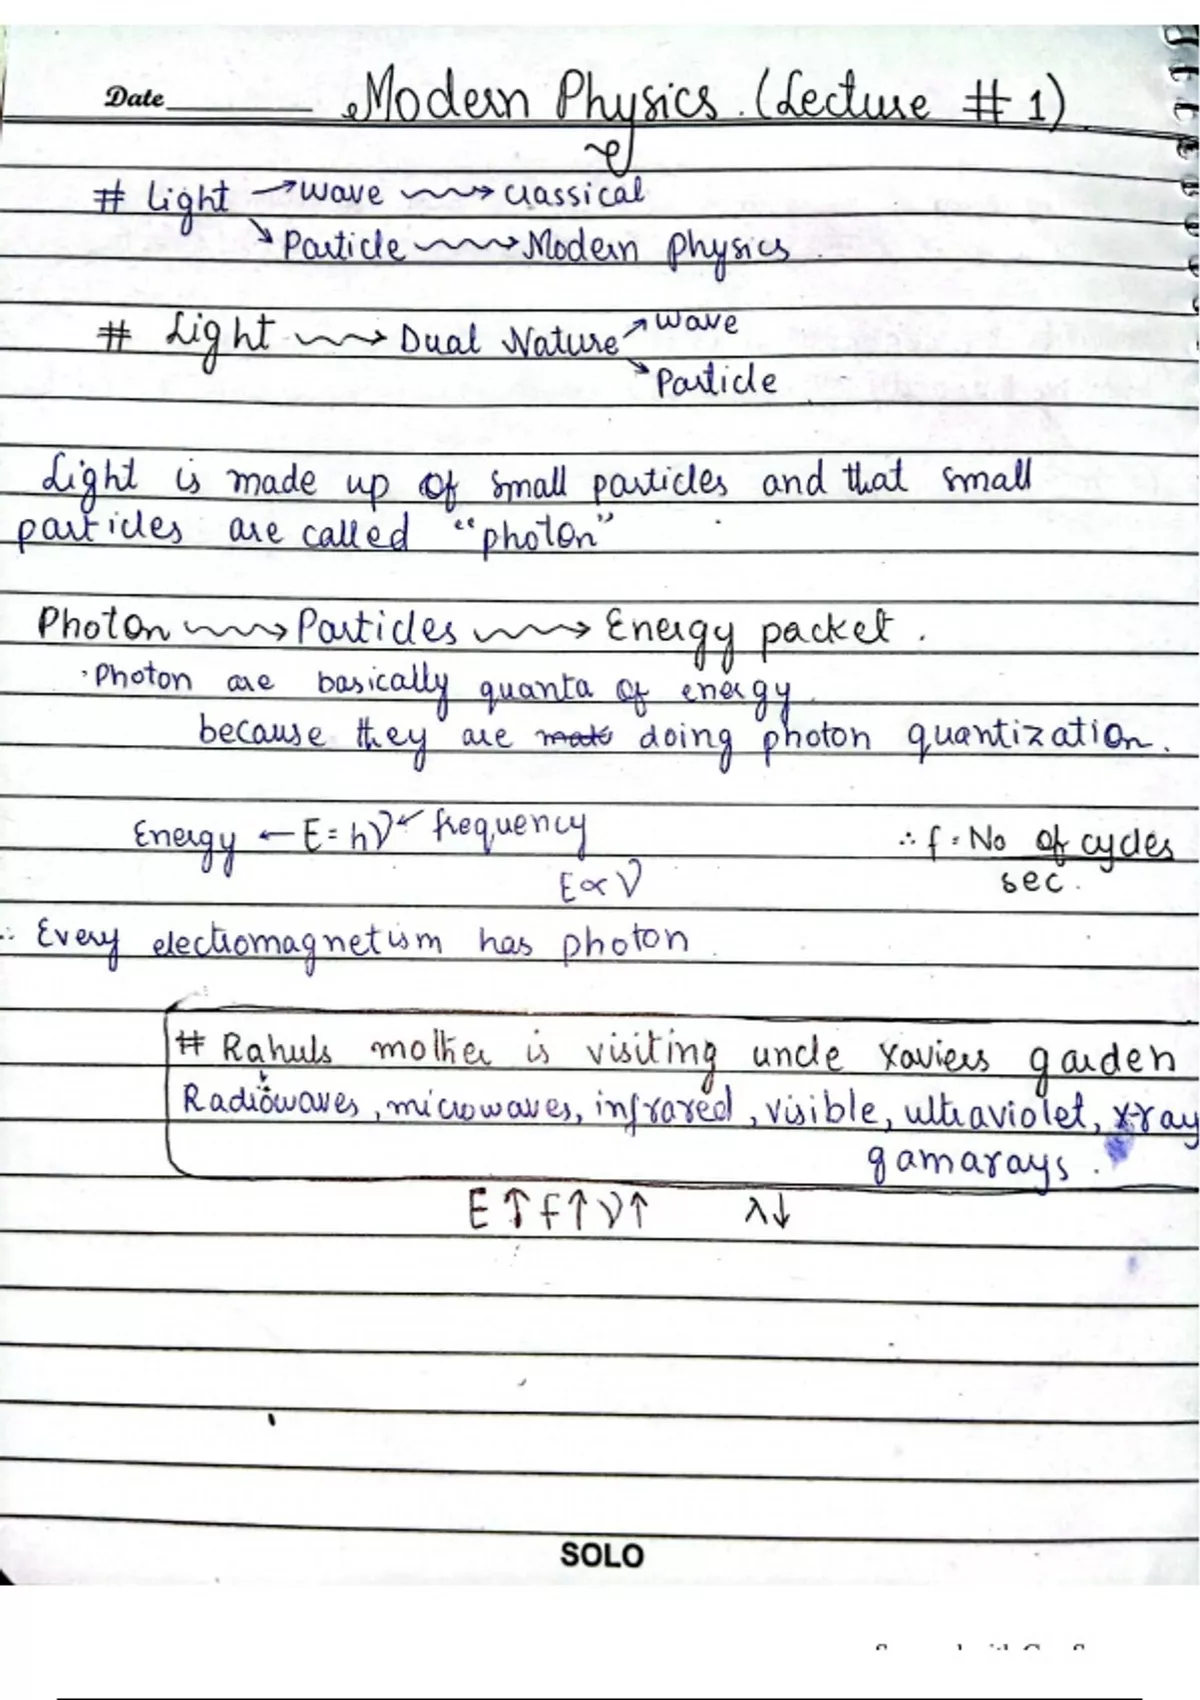 Date Modern Physics. (Lecture # 1)
# Light → wave ⟿ classical
↘ Particle ⟿ Modern physics.
# Light ⟿ Dual Nature ↗ wave
↘ Particle
Light is made up of small particles and that small
particles are called "photon"
Photon ⟿ Particles ⟿ Energy packet.
· Photon are basically quanta of energy.
because they are doing photon quantization.
Energy ← E = hν ↙ frequency ∴ f = No of cycles
E ∝ ν sec.
∴ Every electromagnetism has photon.
# Rahuls mother is visiting uncle Xaviers garden
Radiowaves, microwaves, infrared, visible, ultraviolet, x-ray
gamarays.
E↑ f↑ ν↑ λ↓
SOLO